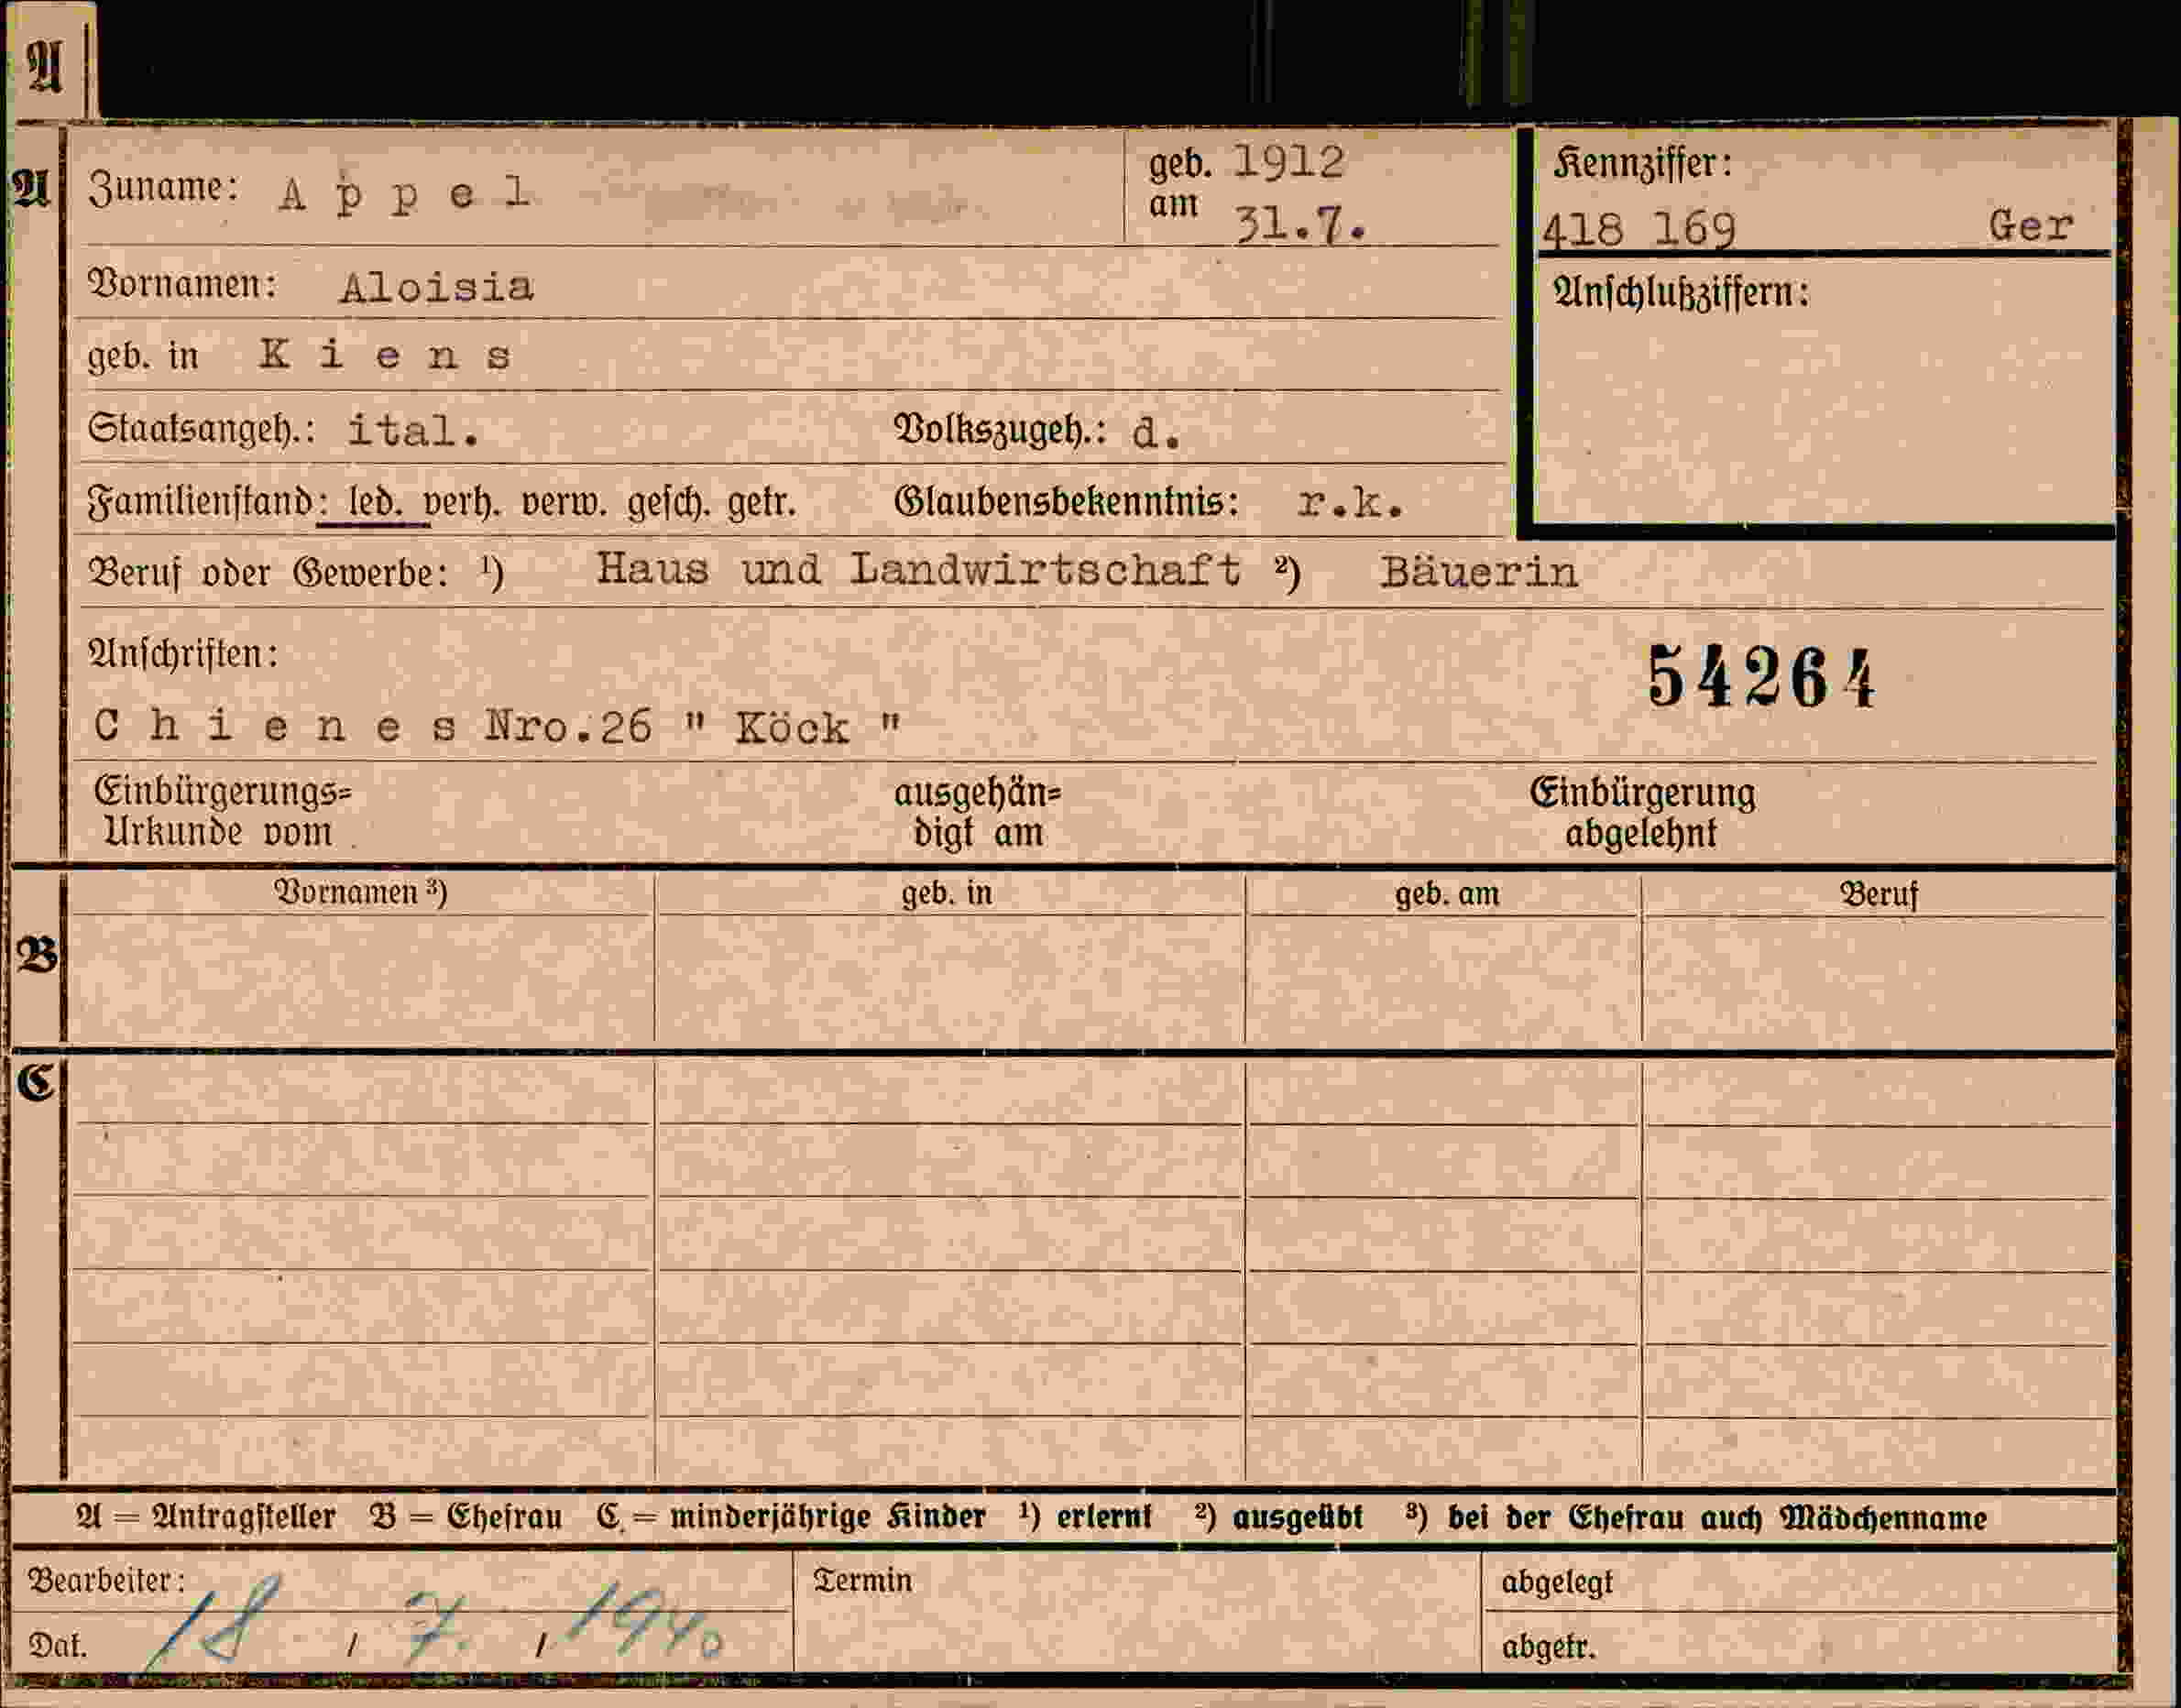 A
A
Zuname: A p p e l
geb. am 1912 31.7.
Kennziffer:
418 169 Ger
Vornamen: Aloisia
Anschlußziffern:
geb. in K i e n s
Staatsangeh.: ital. Volkszugeh.: d.
Familienstand: led. verh. verw. gesch. getr. Glaubensbekenntnis: r.k.
Beruf oder Gewerbe: ¹) Haus und Landwirtschaft ²) Bäuerin
Anschriften:
54264
C h i e n e s Nro.26 " Köck "
Einbürgerungs= ausgehän= Einbürgerung
Urkunde vom digt am abgelehnt
Vornamen ³) geb. in geb. am Beruf
B
C
A = Antragsteller B = Ehefrau C. = minderjährige Kinder ¹) erlernt ²) ausgeübt ³) bei der Ehefrau auch Mädchenname
Bearbeiter: Termin abgelegt
Dat. 18 / 7. / 1940 abgetr.